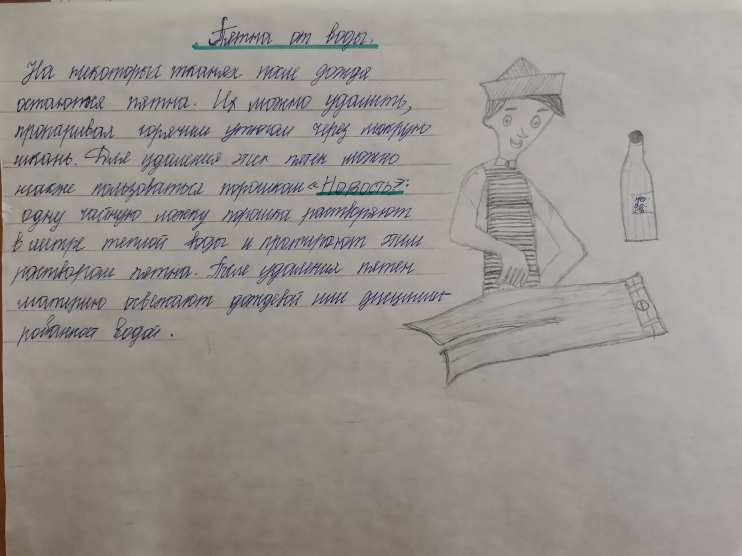 Пятна от воды.
На некоторых тканях после дождя
остаются пятна. Их можно удалить,
пропаривая горячим утюгом через мокрую
ткань. Для удаления этих пятен можно
также пользоваться порошком «Новость»:
одну чайную ложку порошка растворяют
в литре теплой воды и протирают этим
раствором пятна. После удаления пятен
материю освежают дождевой или дистилли-
рованной водой.